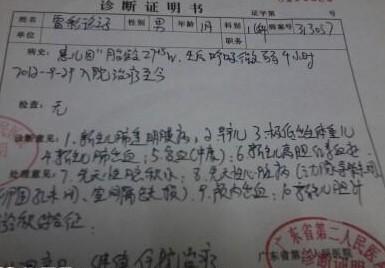 诊断证明书
姓名 性别 男 年龄 1月 科别 儿科 病案号 313057
单位 职务 证字第 号
病史:患儿因"胎龄27+5w,生后呼吸微弱4小时"
2012-9-29入院治疗至今
检查:无
诊断意见:1.新生儿肺透明膜病;2.早产儿 3.极低出生体重儿
4.新生儿肺出血;5.贫血(中度);6.新生儿高胆红素血症
处理意见:7.先天性脑积水;8.先天性心脏病(动脉导管未闭
卵圆孔未闭、室间隔缺损)9.颅内出血;10.新生儿胆汁
淤积综合征.
继续住院治疗
广东省第二人民医院
诊断证明